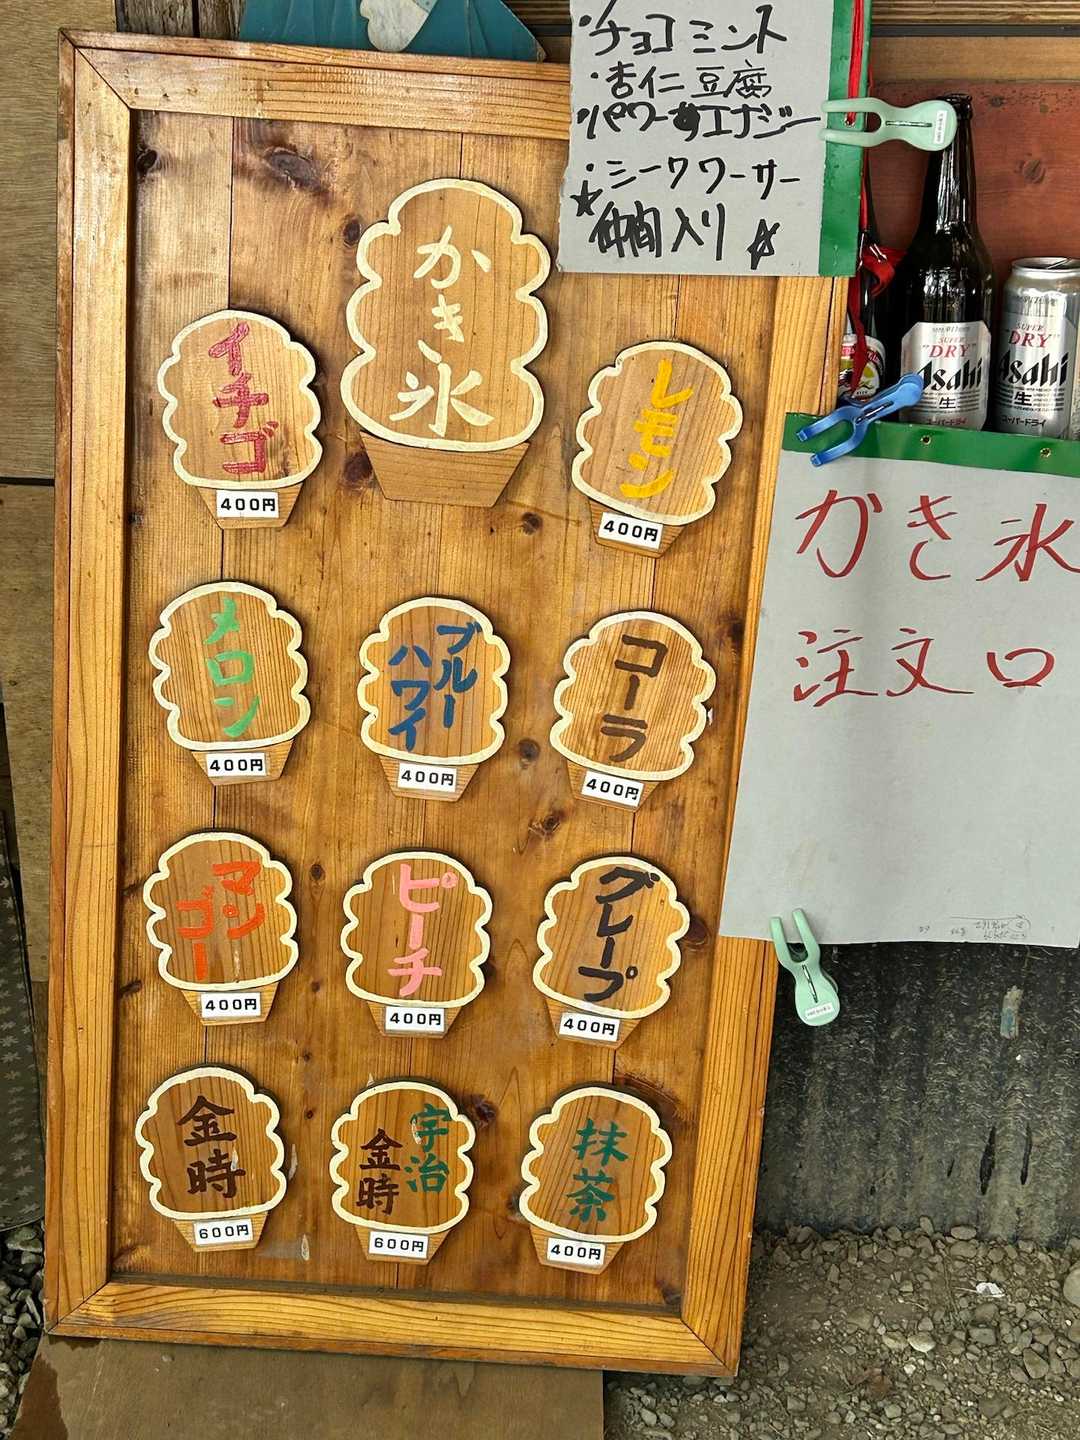 ・チョコミント
・杏仁豆腐
パワーエナジー
・シークワーサー
★仲間入り☆
かき氷
イチゴ
400円
レモン
400円
メロン
400円
ブルー
ハワイ
400円
コーラ
400円
マン
ゴー
400円
ピーチ
400円
グレープ
400円
金時
600円
宇治
金時
600円
抹茶
400円
SUPER
"DRY"
Asahi
生
スーパードライ
SUPER
"DRY"
Asahi
生
スーパードライ
かき氷
注文口